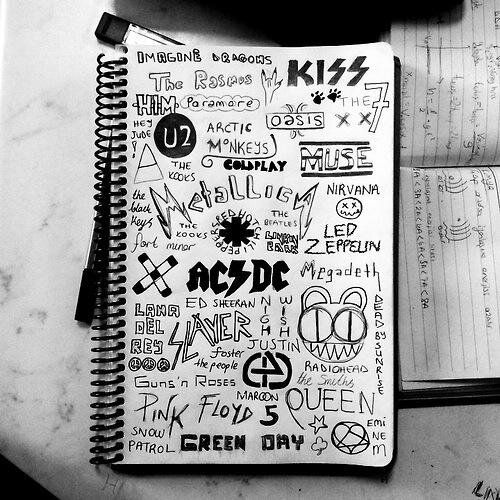 IMAGINE DRAGONS
The Rasmus
KISS
HIM
Paramore
THE
7
HEY
JUDE
!
U2
ARCTIC
MONKEYS
OASIS
X X
THE
KOOKS
COLDPLAY
MUSE
METALLICA
NIRVANA
the
black
keys
THE
KOOKS
THE
BEATLES
RED HOT CHILI PEPPERS
LINKIN
PARK
LED
ZEPPELIN
fort minor
AC/DC
Megadeth
LANA
DEL
REY
ED SHEERAN
NIGHTWISH
SLAYER
JUSTIN
DEAD BY SUNRISE
foster
the people
RADIOHEAD
the Smiths
GUNS'n ROSES
MAROON
5
QUEEN
PINK FLOYD
EMINEM
SNOW
PATROL
GREEN DAY